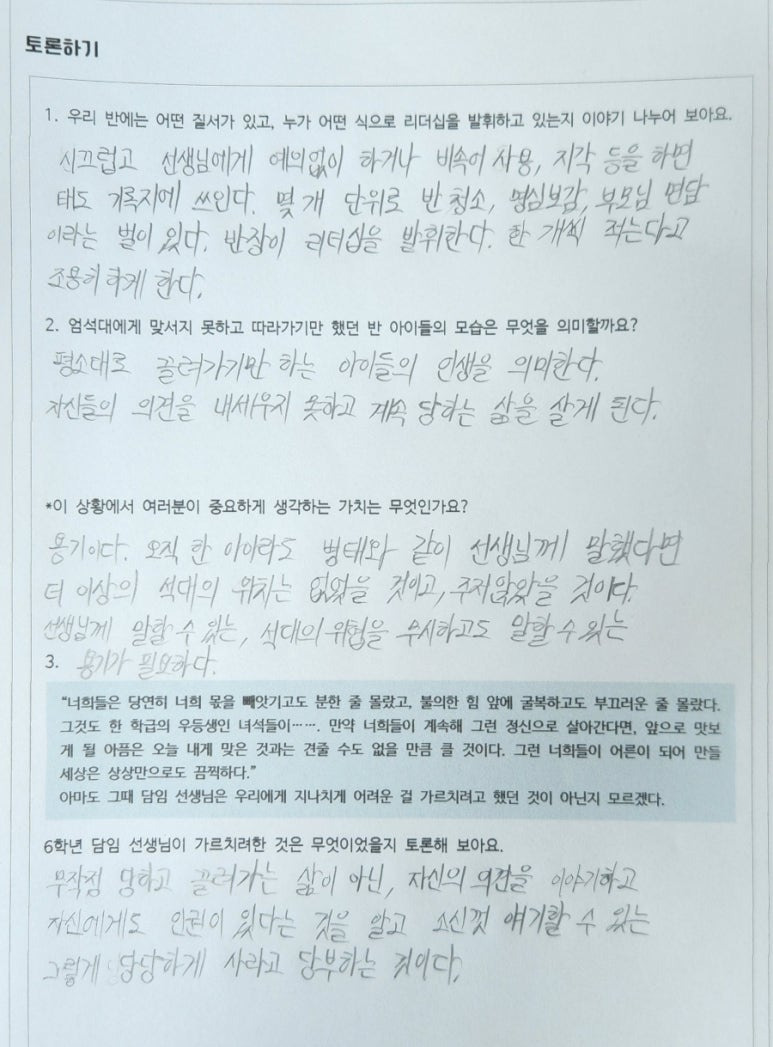 토론하기
1. 우리 반에는 어떤 질서가 있고, 누가 어떤 식으로 리더십을 발휘하고 있는지 이야기 나누어 보아요.
시끄럽고 선생님에게 예의없이 하거나 비속어 사용, 지각 등을 하면
태도 기록지에 쓰인다. 몇 개 단위로 반 청소, 명심보감, 부모님 면담
이라는 벌이 있다. 반장이 리더십을 발휘한다. 한 개씩 적는다고
조용히 하게 한다.
2. 엄석대에게 맞서지 못하고 따라가기만 했던 반 아이들의 모습은 무엇을 의미할까요?
평소대로 끌려가기만 하는 아이들의 인생을 의미한다.
자신들의 의견을 내세우지 못하고 계속 당하는 삶을 살게 된다.
*이 상황에서 여러분이 중요하게 생각하는 가치는 무엇인가요?
용기이다. 오직 한 아이라도 병태와 같이 선생님께 말했다면
더 이상의 석대의 위치는 없었을 것이고, 주저앉았을 것이다.
선생님께 말할 수 있는, 석대의 위협을 무시하고도 말할 수 있는
3. 용기가 필요하다.
“너희들은 당연히 너희 몫을 빼앗기고도 분한 줄 몰랐고, 불의한 힘 앞에 굴복하고도 부끄러운 줄 몰랐다.
그것도 한 학급의 우등생인 녀석들이……. 만약 너희들이 계속해 그런 정신으로 살아간다면, 앞으로 맛보
게 될 아픔은 오늘 내게 맞은 것과는 견줄 수도 없을 만큼 클 것이다. 그런 너희들이 어른이 되어 만들
세상은 상상만으로도 끔찍하다.”
아마도 그때 담임 선생님은 우리에게 지나치게 어려운 걸 가르치려고 했던 것이 아닌지 모르겠다.
6학년 담임 선생님이 가르치려한 것은 무엇이었을지 토론해 보아요.
무작정 당하고 끌려가는 삶이 아닌, 자신의 의견을 이야기하고
자신에게도 인권이 있다는 것을 알고 소신껏 얘기할 수 있는
그렇게 당당하게 사라고 당부하는 것이다.